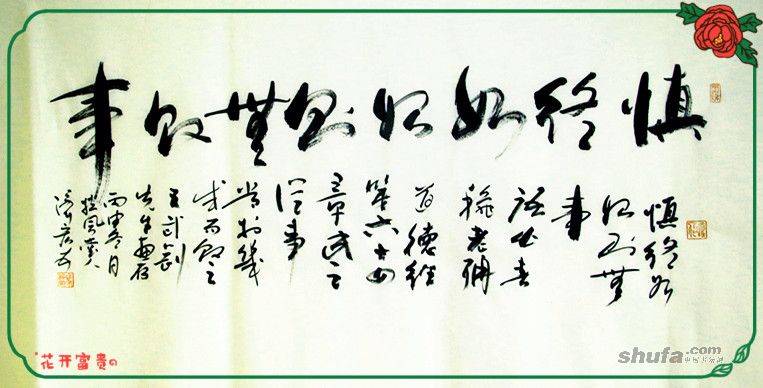 慎終如始則無敗事
慎終如
始則無
事
語出春
秋老聃
道德經
第六十四
章民之
從事
常於幾
成而敗之
先生
丙申冬月
花开富贵
shufa.com